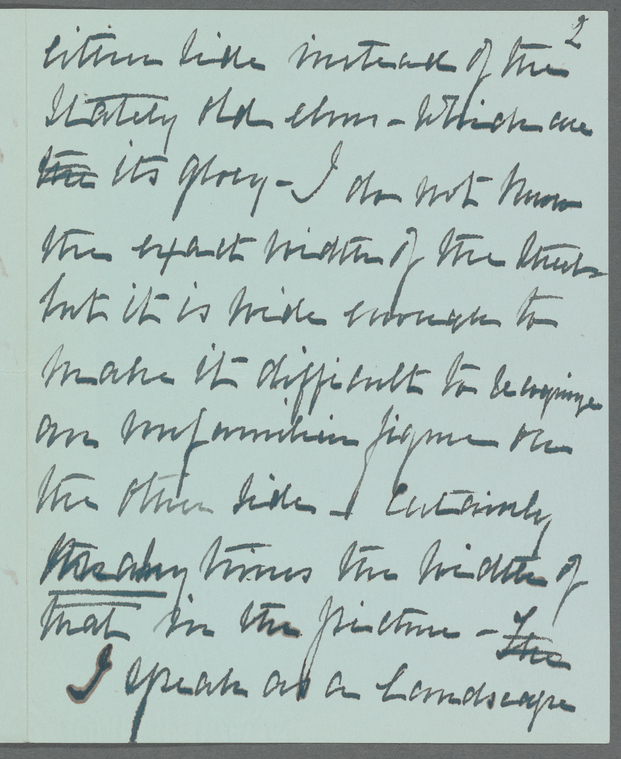 2
either side instead of the
stately old elms - which are
the its glory - I do not know
the exact width of the street
but it is wide enough to
make it difficult to recognize
an unfamiliar figure on
the other side - Certainly
many times the width of
that in the picture - The
I speak as a landscape